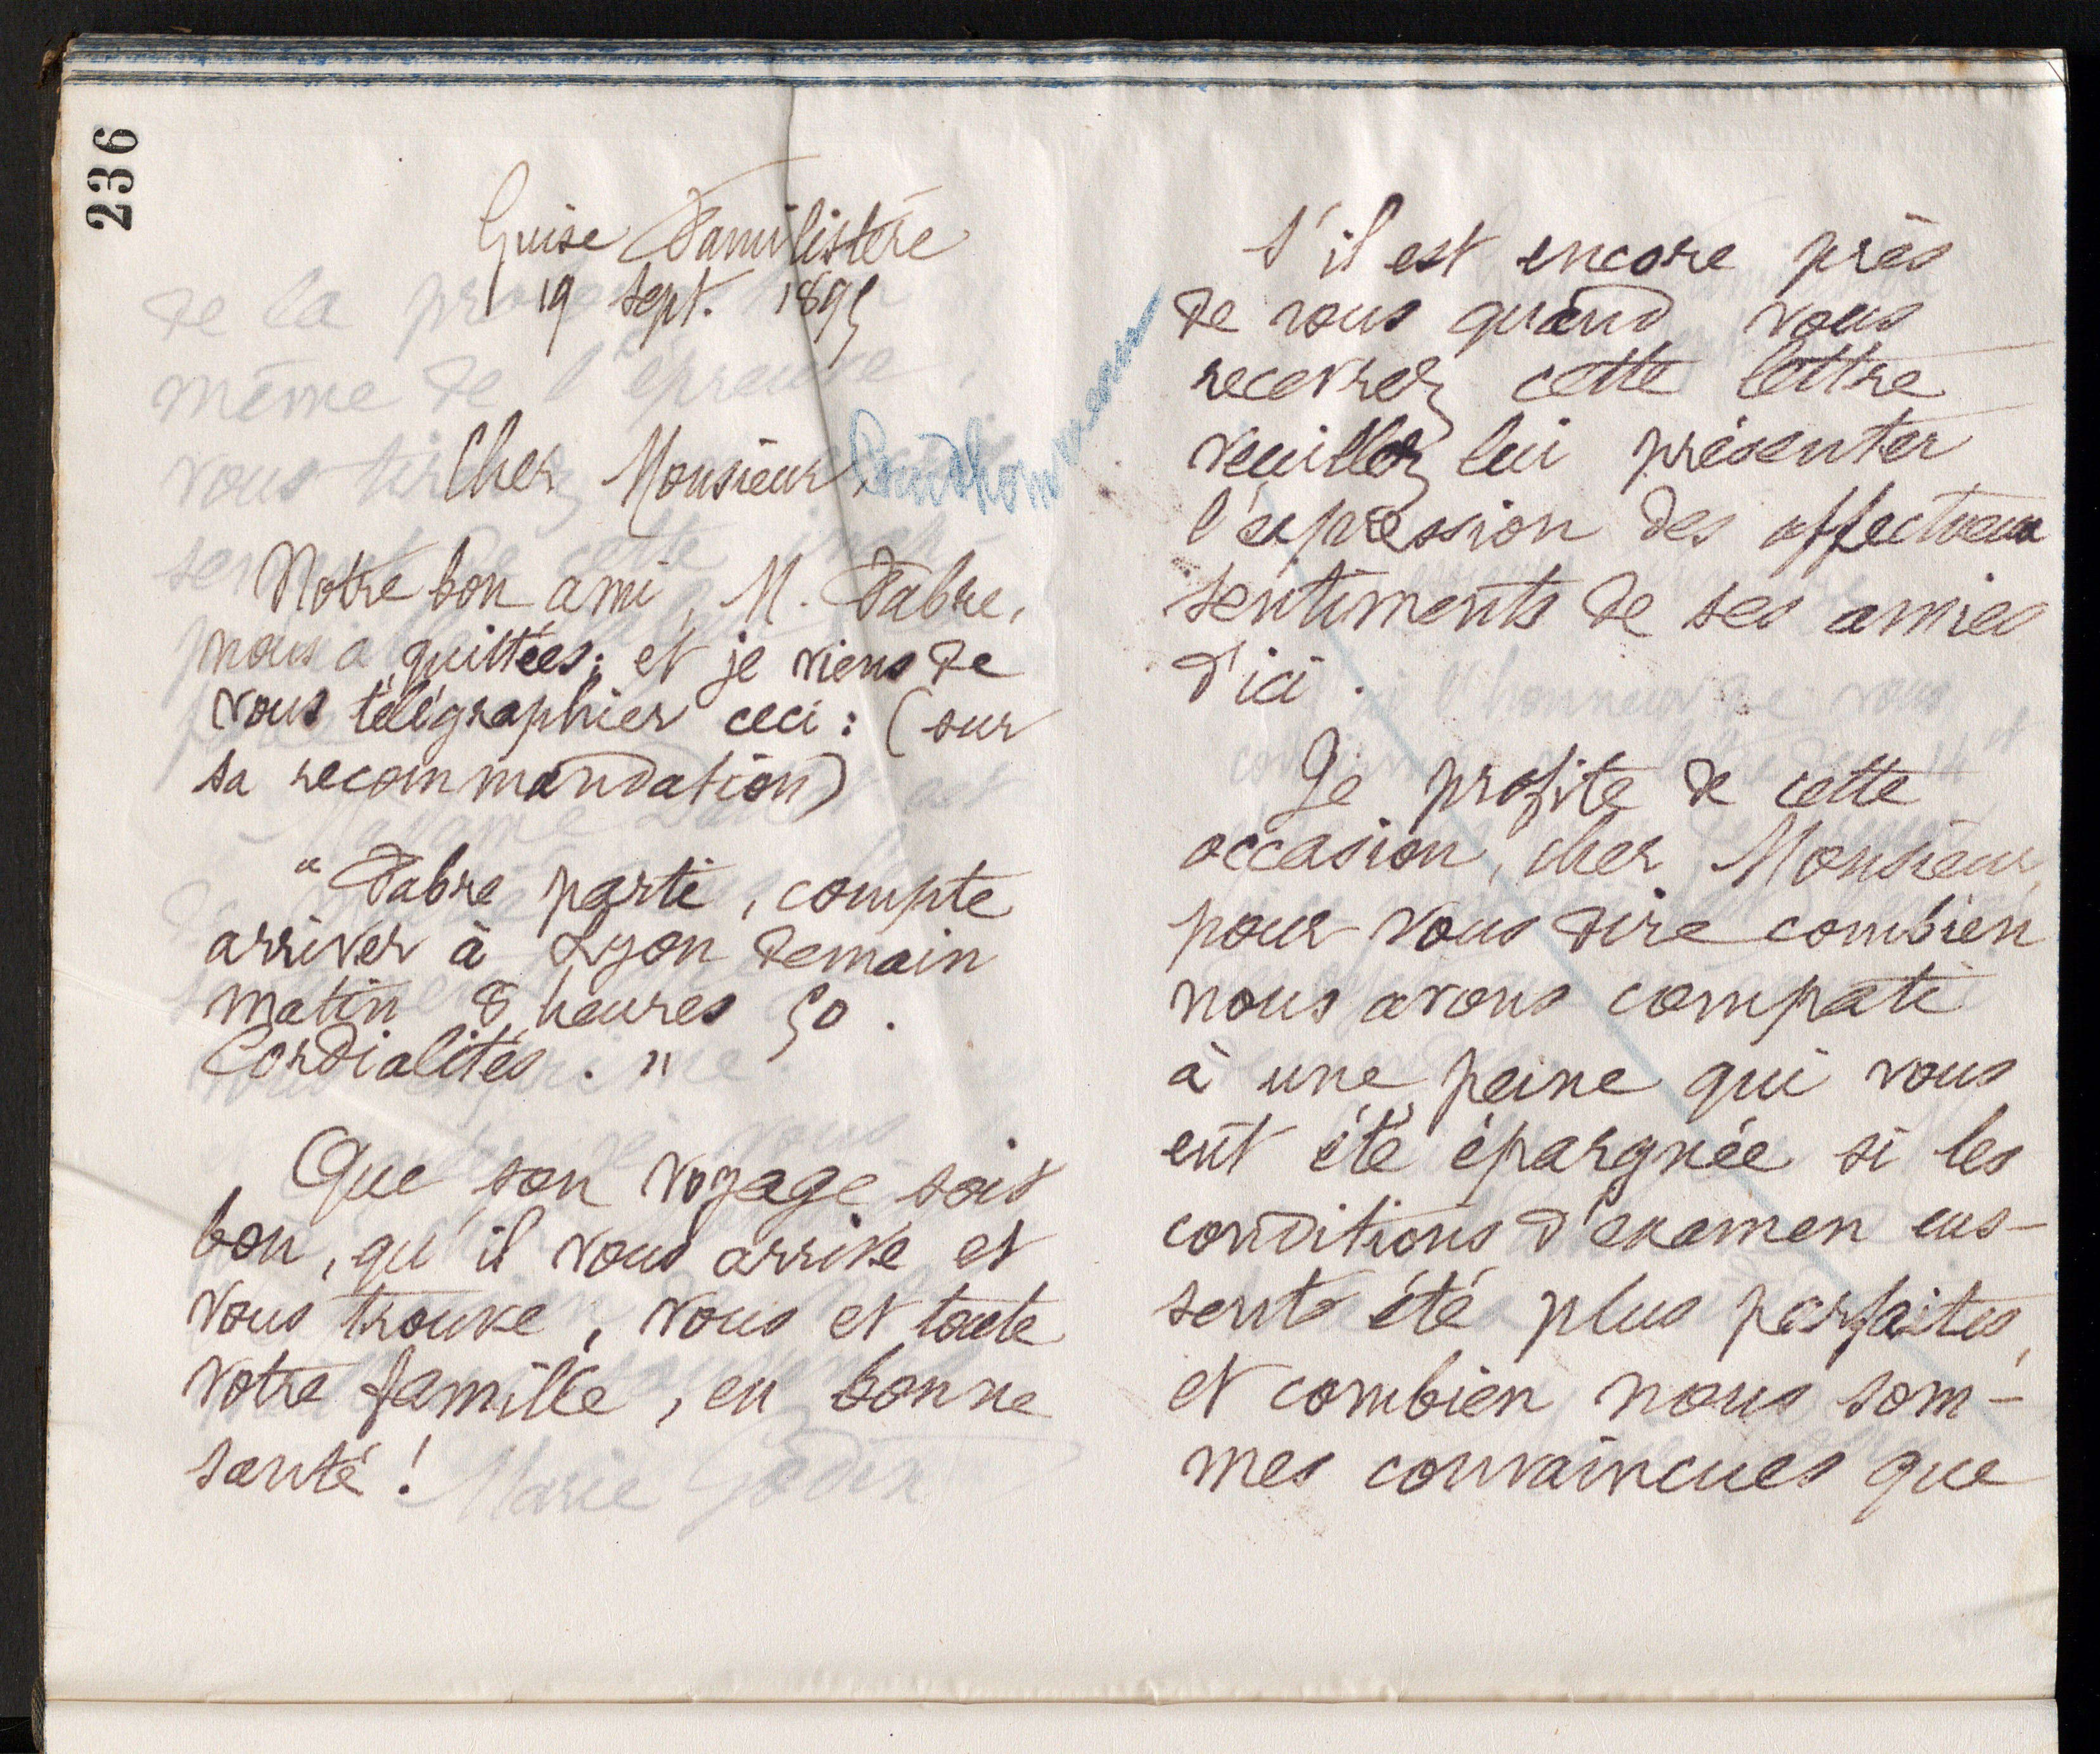 236
Guise Familistère
19 Sept. 1895
Cher Monsieur Prudhommeaux
Notre bon ami, M. Fabre,
nous a quittées; et je viens de
vous télégraphier ceci : (sur
sa recommandation)
"Fabre parti, compte
arriver à Lyon demain
matin 8 heures 50.
Cordialités."
Que son voyage soit
bon, qu'il vous arrive et
vous trouve, vous et toute
votre famille, en bonne
santé !
S'il est encore près
de vous quand vous
recevrez cette lettre
veuillez lui présenter
l'expression des affectueux
sentiments de ses amies
d'ici.
Je profite de cette
occasion, cher Monsieur,
pour vous dire combien
nous avons compati
à une peine qui vous
eût été épargnée si les
conditions d'examen eus-
sent été plus parfaites,
et combien nous som-
mes convaincues que